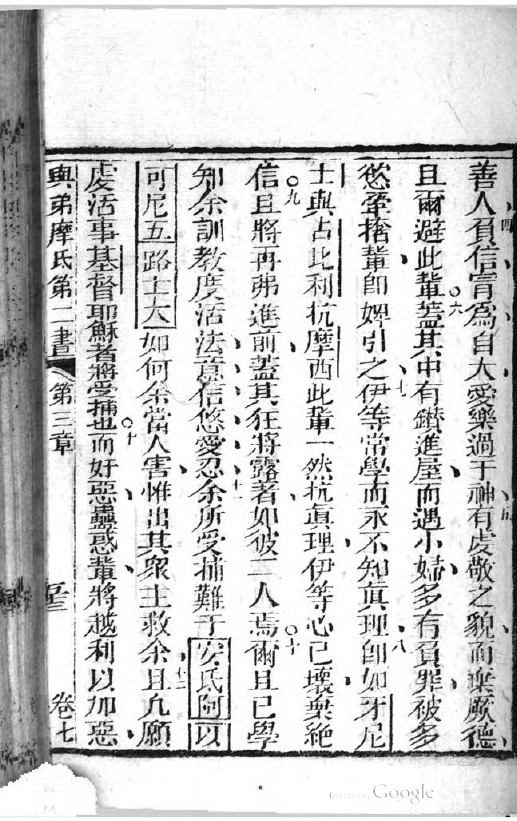 善人負信寄為自大愛樂過于神有虔敬之貌而棄厥德
且爾避此輩蓋其中有鑚進屋而遇小婦多有負罪被多
慾牽捨輩即婢引之伊等常學而永不知真理即如牙尼
士與占比利抗摩西此輩一然抗真理伊等心已壞棄絕
信且將再弗進前蓋其狂將露著如彼二人焉爾且已學
知余訓教度活法意信悠愛忍余所受捕難于安氏阿以
可尼五路士大如何余當人害惟出其衆主救余且凢願
虔活事基督耶穌者將受捕也而好惡蠱惑輩將越利以加惡
與弟摩氏第二書 第三章 卷七
四
五
六
七
八
九
十
十一
十二
Google